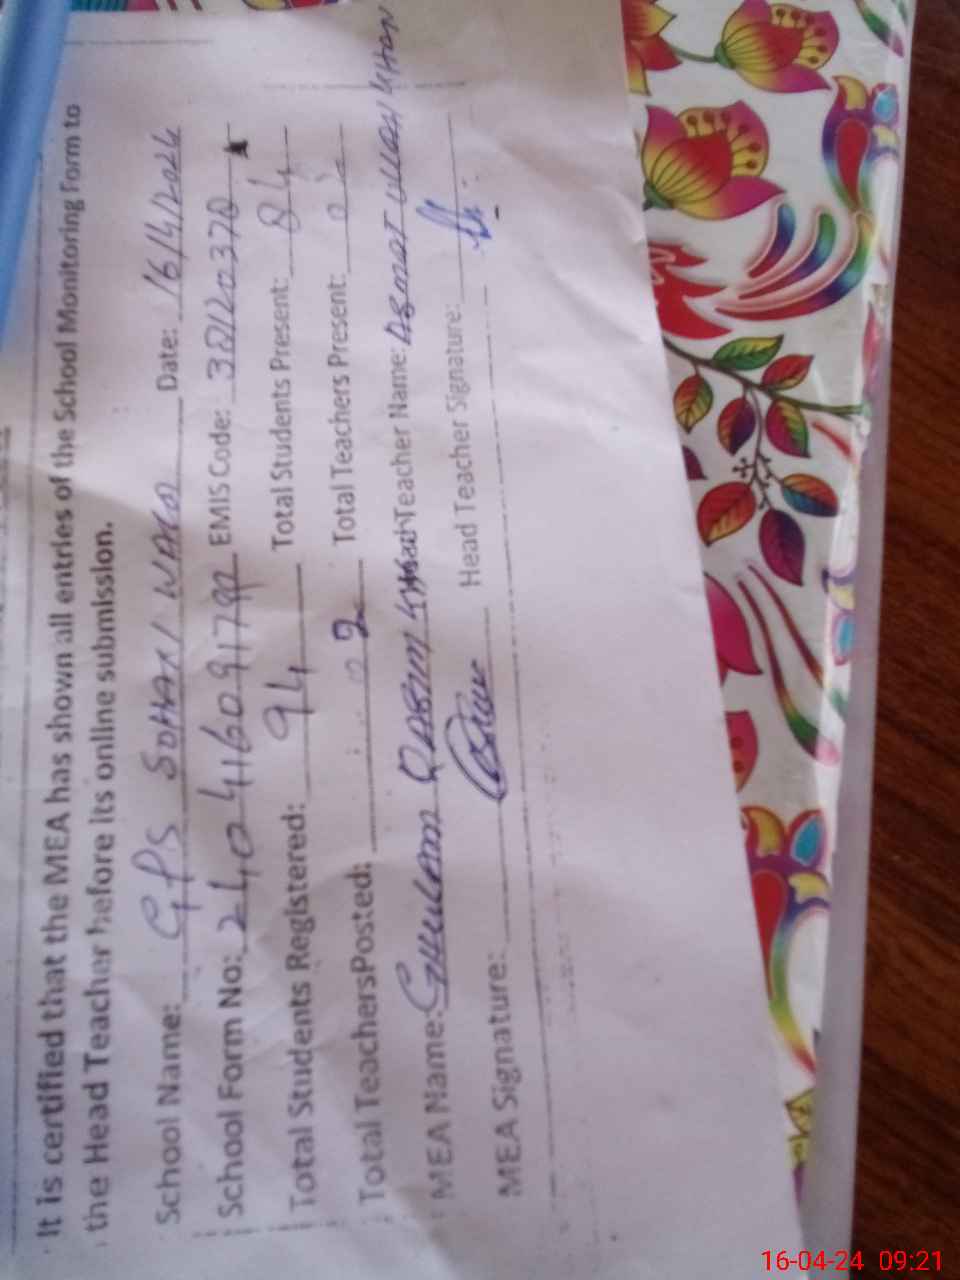 It is certified that the MEA has shown all entries of the School Monitoring Form to
the Head Teacher before its online submission.
School Name: GPS SOHAKI WALA Date: 16/4/2024
School Form No: 240416091797 EMIS Code: 32120370
Total Students Registered: 94 Total Students Present: 84
Total TeachersPosted: 2 Total Teachers Present: 02
MEA Name: GHULAM QASIM KHAN Head Teacher Name: ASMAT ULLAH KHAN
MEA Signature: Head Teacher Signature:
16-04-24 09:21